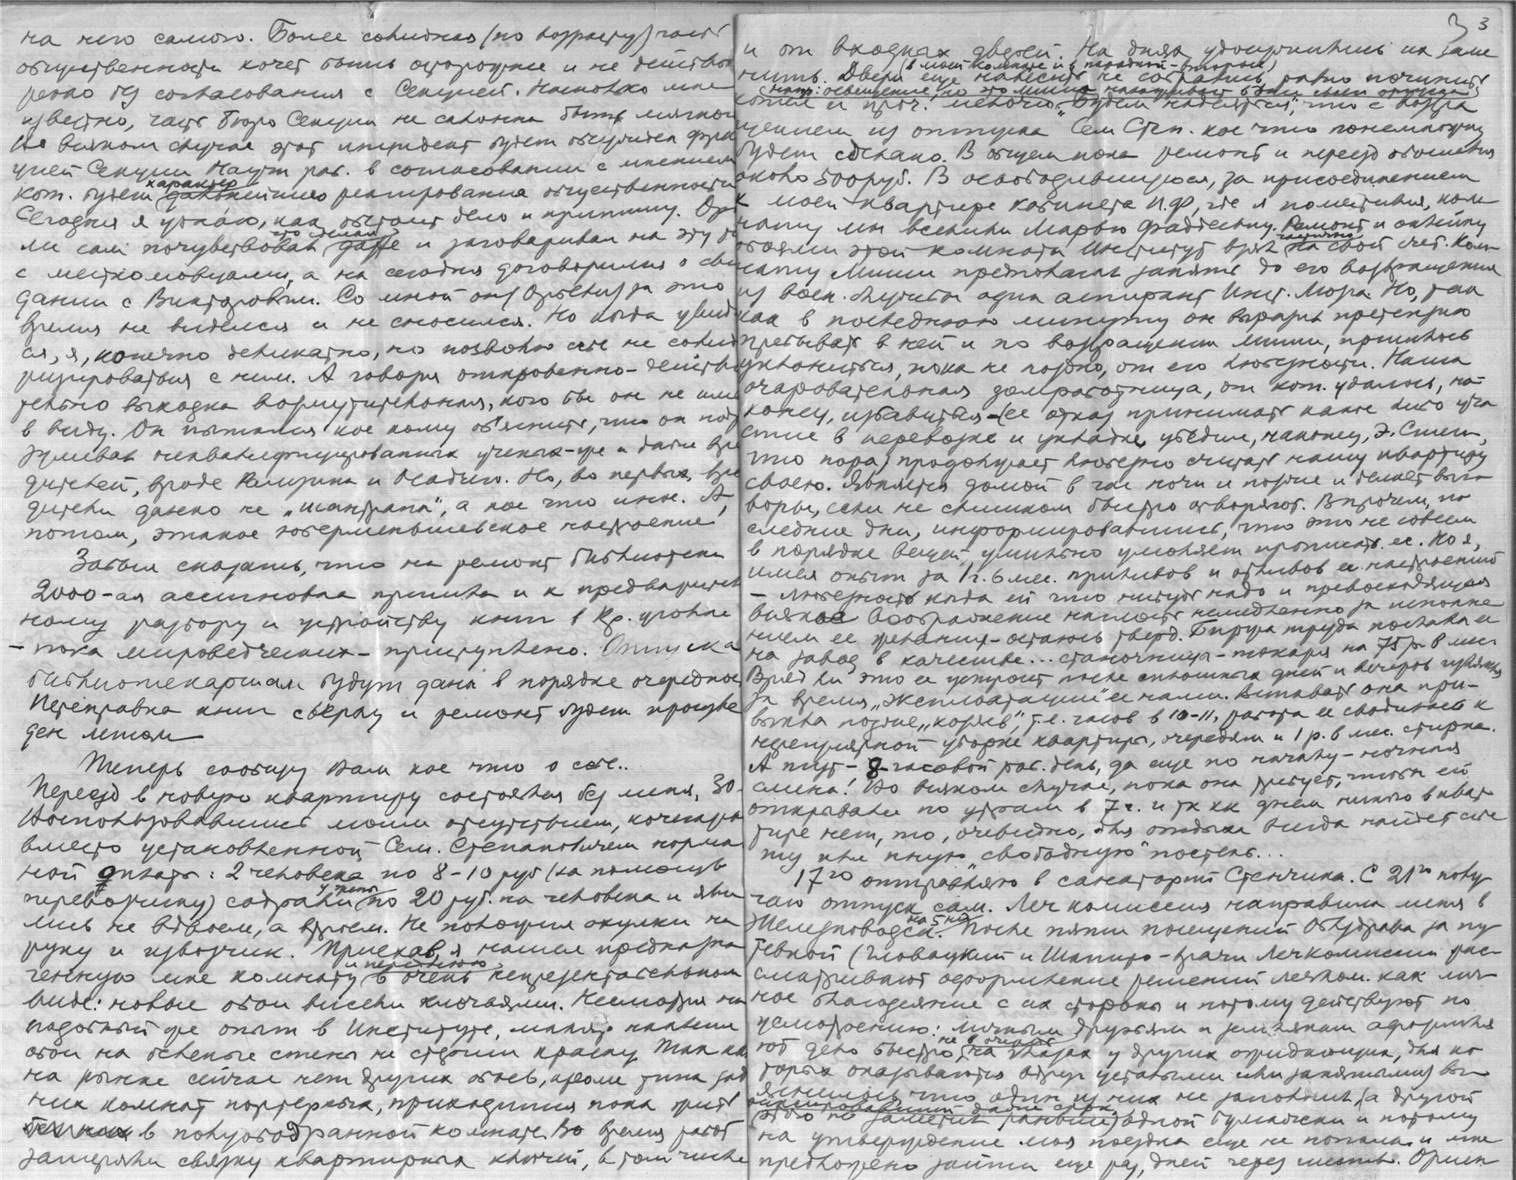 на него самого. Более солидная (по возрасту) часть
общественности хочет быть осторожнее и не действо
без согласования с Секцией. Насколько мне
известно, часть Бюро Секции не склонна быть мягкой
Во всяком случае этот инцидент будет обсуждаться
цией Секции Научн. раб. в согласовании с мнением
кот. будет характер дальнейшего реагирования общественности
Сегодня я узнаю, как обстоит дело и припишу.
ли сам почувствовал что сделал даже и заговаривал на эту
с месткомовцами, а на сегодня договорился о сви
дании с Викторовым. Со мной он за это
время не виделся и не сносился. Но когда увид
ся, я, конечно деликатно, но позволю себе не солид
ризироваться с ним. А говоря откровенно – действи
тельно выходка возмутительная, кого бы он не имел
в виду. Он пытался кое кому объяснить, что он под
дителей, вроде и Но, во первых, вре
дители далеко не „шантрапа", а кое что иное. А,
потом, этакое настроение
Забыл сказать, что на ремонт библиотеки
2000-ая ассигновка пришла и к предварител
ному разбору и устройству книг в Кр. уголке
– пока мироведческих – приступлено. Отпуска
библиотекаршам будут даны в порядке очередное
Переправка книг сверху и ремонт будет произве
ден летом
Теперь сообщу Вам кое что о себе..
Переезд в новую квартиру состоялся без меня, 30-
Воспользовавшись моим отсутствием, кочегары
вместо установленной Сем. Степановичем норма
ной платы: 2 человека по 8-10 руб (за помощь
перевозчику) содрали по 20 руб. на человека и яви
лись не вдвоем, а втроем. Не положил охулки на
руку и извозчик. Приехав, я нашел предназна
ченную мне комнату и переднюю в очень непрезентабельном
виде: новые обои висели клочьями. Несмотря на
подобный же опыт в Институте, маляр наклеил
обои на беленые стены не сдирая краску. Так как
на рынке сейчас нет других обоев, кроме типа зад
них комнат портерных, приходится пока жить
в полуободранной комнате. Во время работ
затеряли связку квартирных ключей, в том числе
3
и от входных дверей. На днях удосужились их заме
нить. Двери еще (в моей комнате и в парадной – вторые) навесить не собрались, равно починить
котел и проч. мелочи. Будем надеяться, что с возвра
щением из отпуска Сем Степ. кое что понемногу
будет сделано. В общем пока ремонт и переезд обошелся
около 500 руб. В освободившуюся, за присоединением
к моей квартире кабинета И.Ф, где я поместился, ком
нату мы вселили Марью Фадеевну. Ремонт и оклейку
обоями этой комнаты Институт взял на свой счет. Ком
нату Миши предполагал занять до его возвращения
из воен. службы один аспирант Инст. Мозга. Но, так
как в последнюю минуту он выразил претензию
пребывать в ней и по возвращении Миши, пришлось
уклониться, пока не поздно, от его любезности. Наша
очаровательная домработница, от кот. удалось, на-
конец, избавиться – (ее отказ принимать какое либо уча
стие в перевозке и укладке убедил, наконец, Э.
что пора) продолжает любезно считать нашу квартиру
своею. Является домой в час ночи и позже и делает выго
воры, если не слишком быстро отворяют. Впрочем, по
следние дни, информировавшись, что это не совсем
в порядке вещей, умильно умоляет прописать ее. Но я,
имея опыт за 1 г. 6 мес. приливов и отливов ее настроений
– любезность когда ей что нибудь надо и превосходящая
всякое воображение наглость немедленно за исполне
нием ее желания – остаюсь тверд. Биржа труда послала ее
на завод в качестве... станочницы – токаря на 75 р. в мес
Вряд ли это ее устроит после сплошных дней и вечеров гулянья
за время „эксплоатации" ее нами. Вставать она при-
выкла позднее, т.е. часов в 10-11, работа ее сводилась к
нерегулярной уборке квартиры, очередям и 1 р. в мес. стирке.
А тут – 8-часовой раб. день, да еще по началу – ночная
смена! Во всяком случае, пока она требует, чтобы ей
открывали по утрам в 7 ч. и так как днем никого в квар
тире нет, то, очевидно, для отдыха всегда найдет себе
ту или иную „свободную" постель...
17го отправляю в санаторий Стенчика. С 21го полу
чаю отпуск сам. Леч комиссия направила меня в
Железноводск. После пяти посещений Облздрава за пу
тевкой (Гловацкий и Шапиро – врачи Лечкомиссии рас
сматривают оформление решений лечком. как лич
ное благодеяние с их стороны и потому действуют по
усмотрению: личным друзьям и землякам оформля
ют дело быстро, не в очередь на глазах у других ожидающих, для ко
торых оказываются вдруг усталыми или занятыми) вы
яснилось, что один из них не заполнил, (а другой
этого не заметил раньше) одной бумажки и потому
на утверждение моя поездка еще не попала и мне
предложено зайти еще раз, дней через шесть.